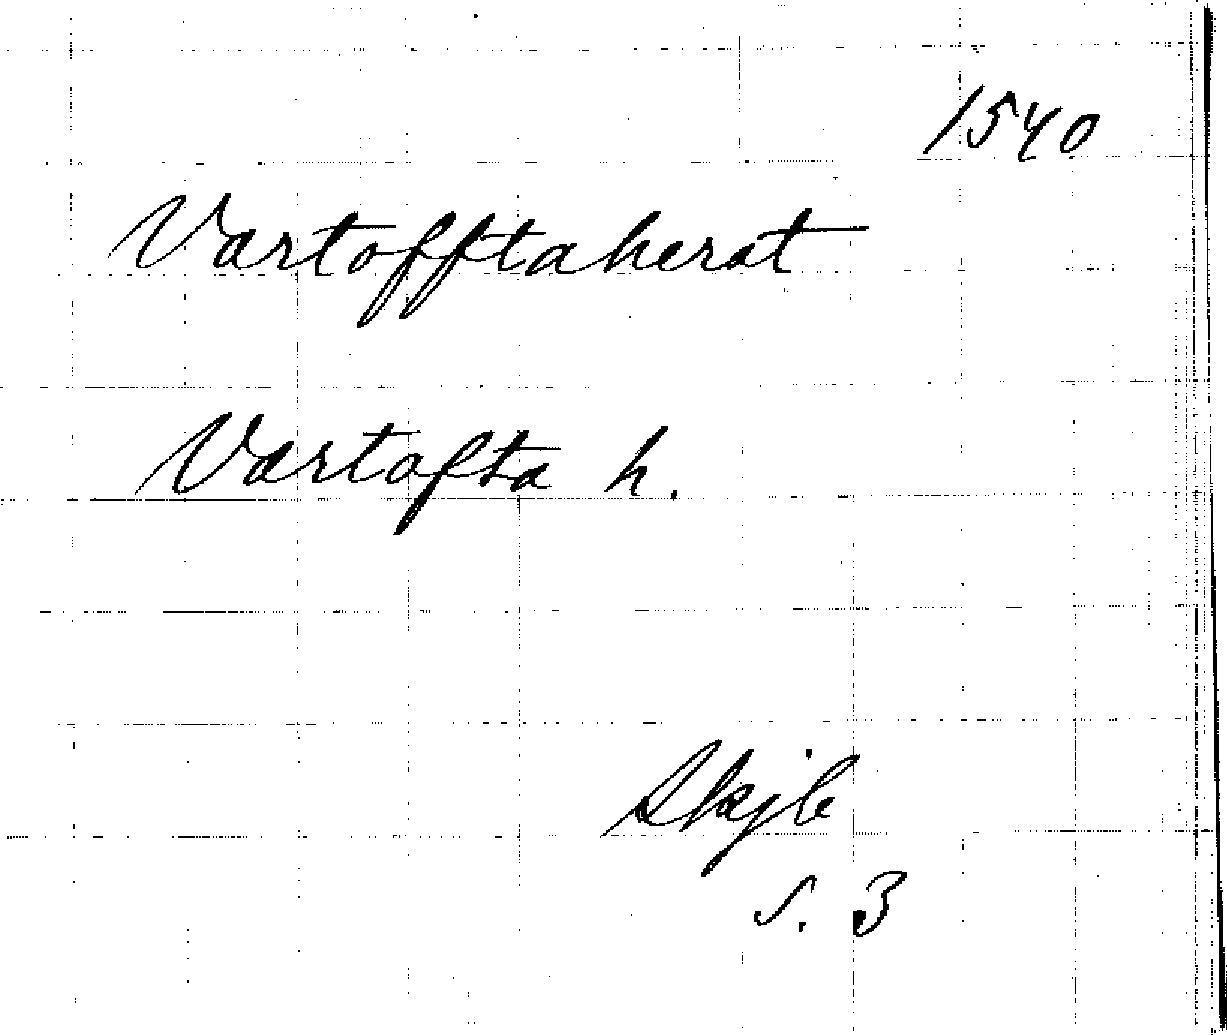 1540
Vartofftaherat
Vartofta h.
Skjb
s. 3